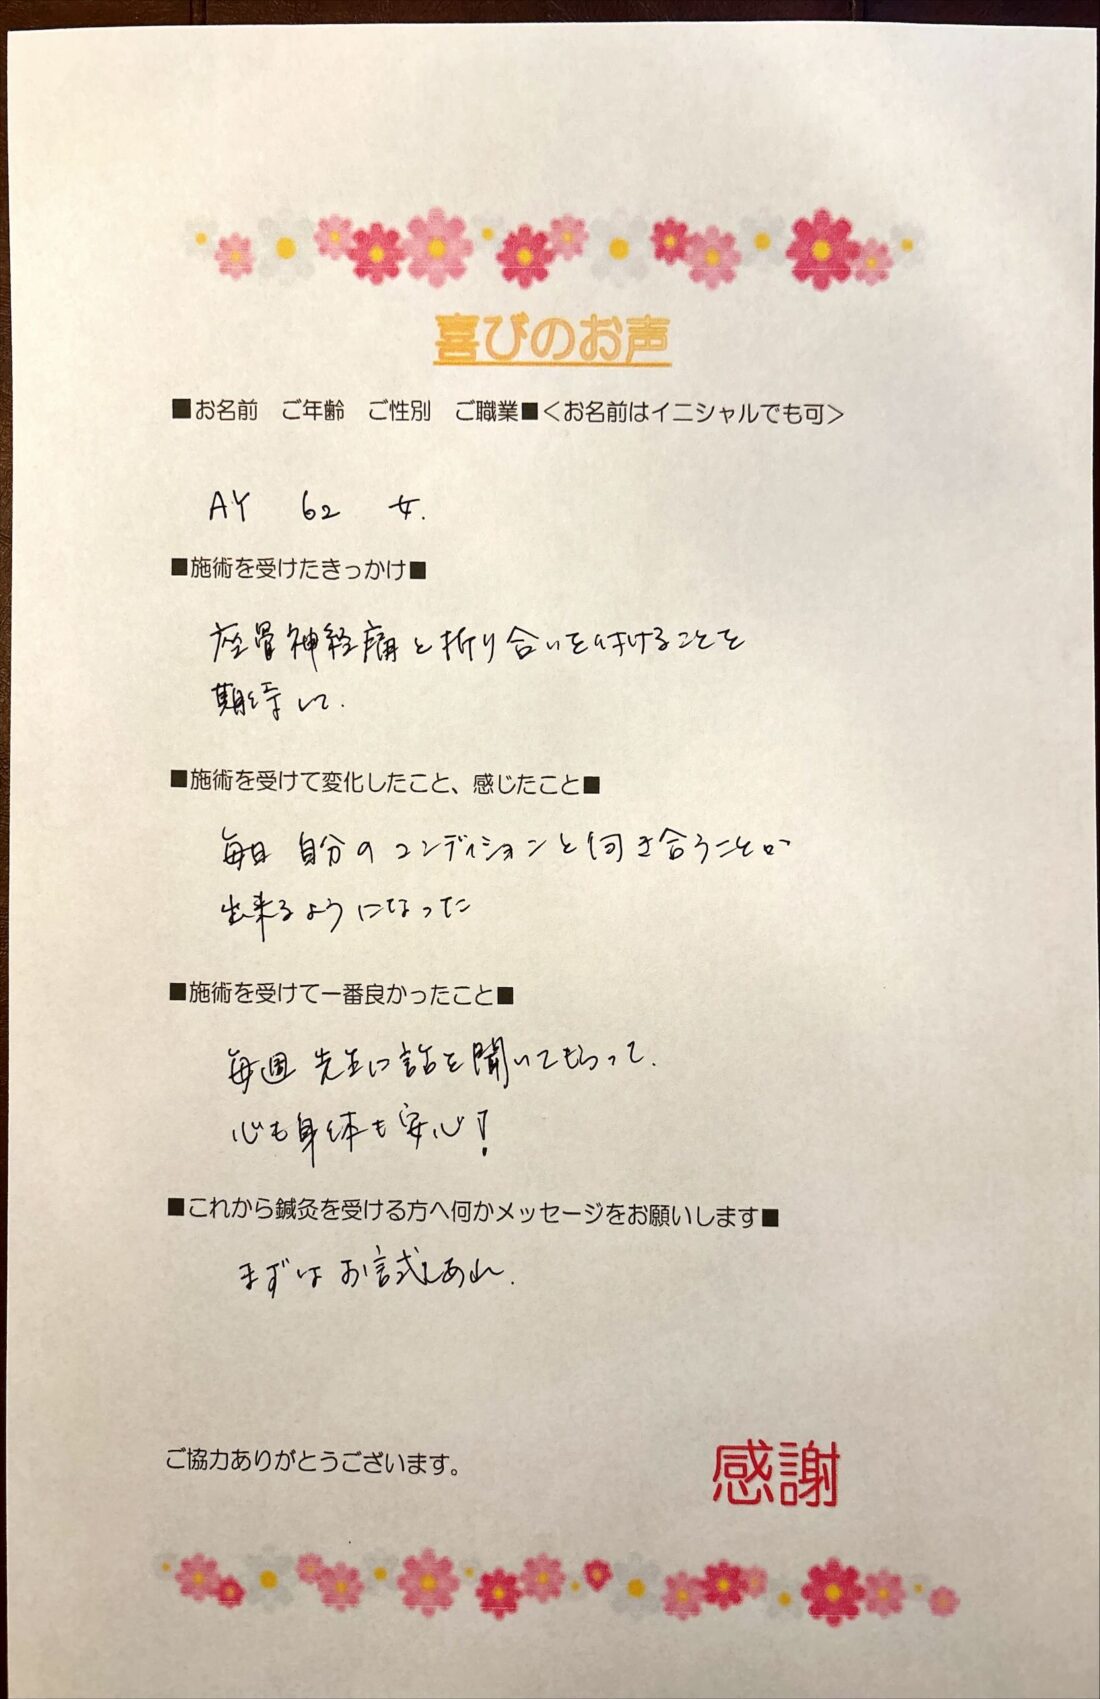 喜びのお声
■お名前　ご年齢　ご性別　ご職業■＜お名前はイニシャルでも可＞
AY　62　女.
■施術を受けたきっかけ■
座骨神経痛と折り合いを付けることを
期待して.
■施術を受けて変化したこと、感じたこと■
毎日 自分のコンディションと向き合うことが
出来るようになった
■施術を受けて一番良かったこと■
毎週 先生に話を聞いてもらって.
心も身体も安心!
■これから鍼灸を受ける方へ何かメッセージをお願いします■
まずはお試しあれ.
ご協力ありがとうございます。
感謝